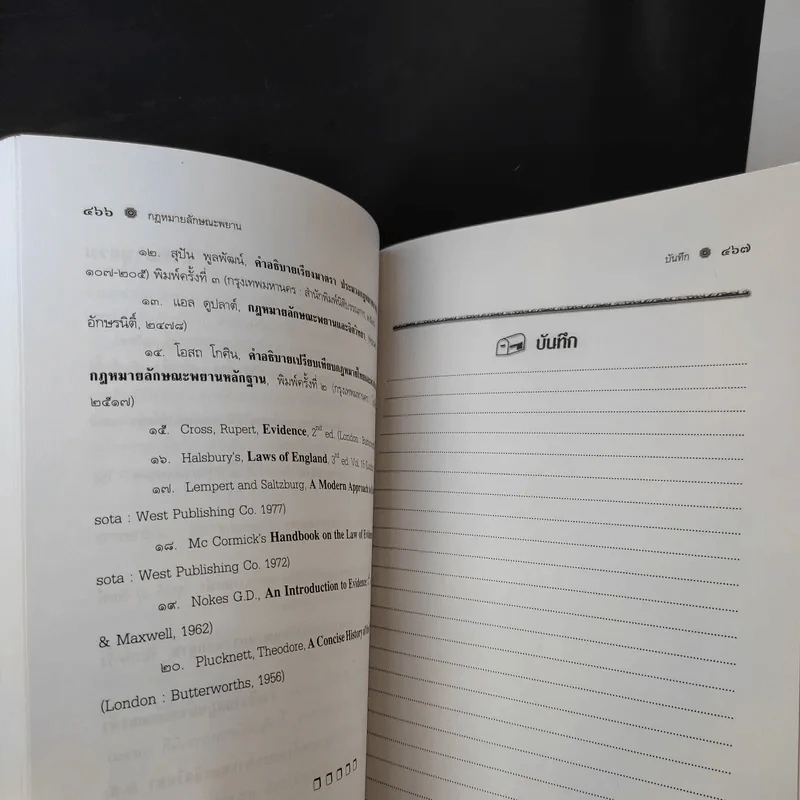 ๔๖๖ กฎหมายลักษณะพยาน
๑๒. สุปัน พูลพัฒน์, คำอธิบายเรียงมาตรา ประมวลกฎหมาย
๑๐๗-๒๐๕) พิมพ์ครั้งที่ ๓ (กรุงเทพมหานคร : สำนักพิมพ์นิติบรรณการ,
๑๓. แอล ดูปลาต์, กฎหมายลักษณะพยานและจิตวิทยา,
อักษรนิติ์, ๒๔๗๘)
๑๔. โอสถ โกศิน, คำอธิบายเปรียบเทียบกฎหมายไทยและ
กฎหมายลักษณะพยานหลักฐาน, พิมพ์ครั้งที่ ๒ (กรุงเทพมหานคร :
๒๕๑๗)
๑๕. Cross, Rupert, Evidence, 2nd ed. (London :
๑๖. Halsbury's, Laws of England, 3rd ed. Vol. 15
๑๗. Lempert and Saltzburg, A Modern Approach to
sota : West Publishing Co. 1977)
๑๘. Mc Cormick's Handbook on the Law of
sota : West Publishing Co. 1972)
๑๙. Nokes G.D., An Introduction to Evidence.
& Maxwell, 1962)
๒๐. Plucknett, Theodore, A Concise History of
(London : Butterworths, 1956)
บันทึก ๔๖๗
บันทึก